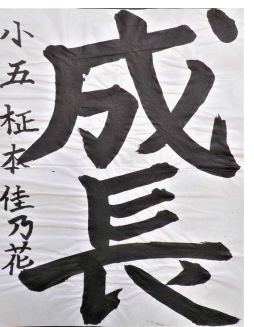 成長
小五 柾本佳乃花